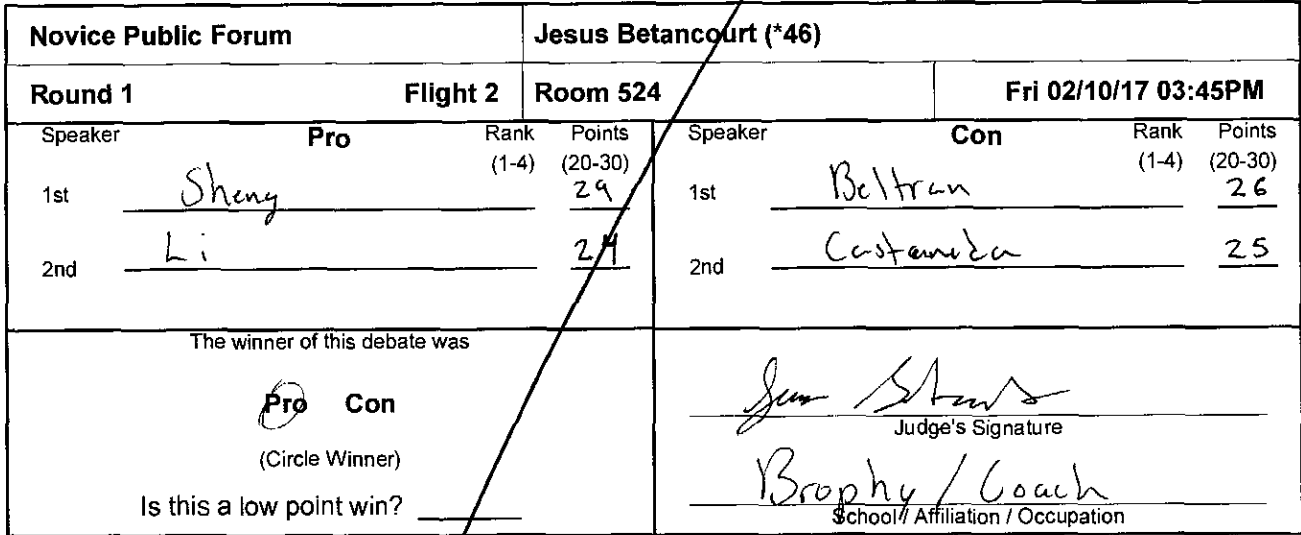 Novice Public Forum Jesus Betancourt (*46)
Round 1 Flight 2 Room 524 Fri 02/10/17 03:45PM
Speaker Pro Rank Points
(1-4) (20-30)
1st Sheng 29
2nd Li 24
Speaker Con Rank Points
(1-4) (20-30)
1st Beltran 26
2nd Castaneda 25
The winner of this debate was
Pro Con
(Circle Winner)
Is this a low point win?
Judge's Signature
Brophy / Coach
School / Affiliation / Occupation